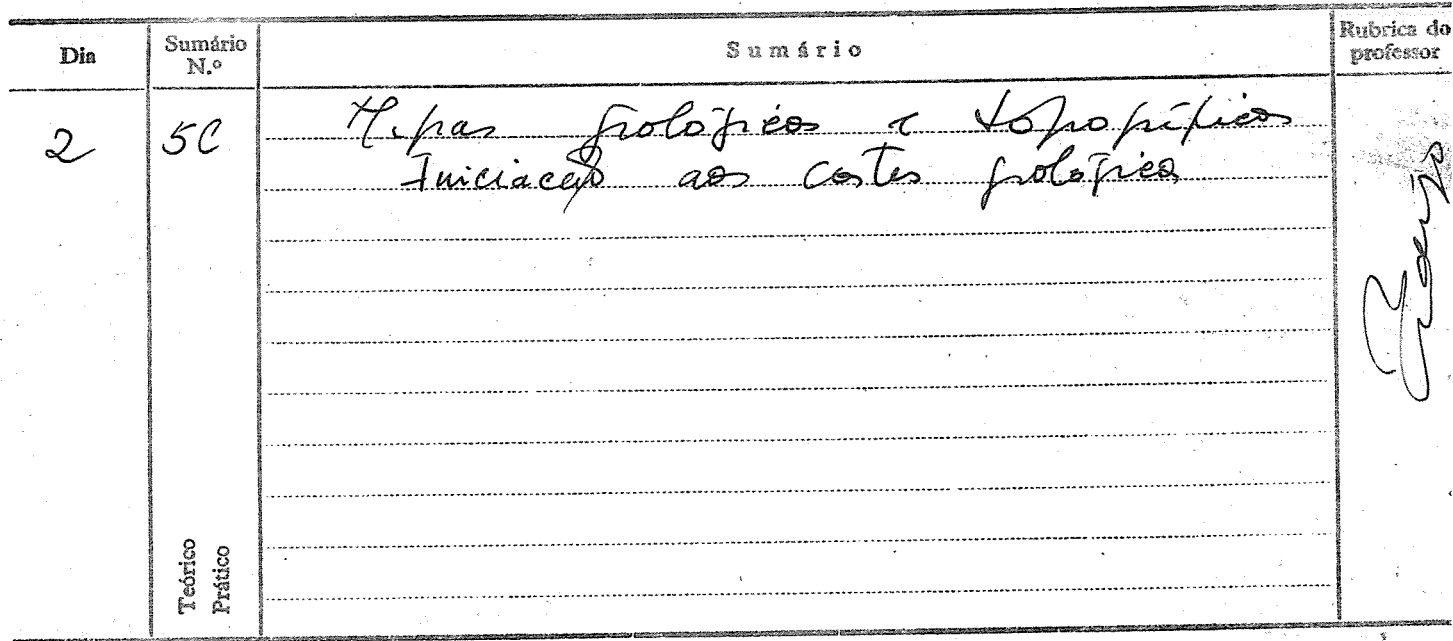 Dia
Sumário N.º
Sumário
Rubrica do professor
2
5C
Mapas geológicos e topográficos
Iniciação aos cortes geológicos
Teórico
Prático